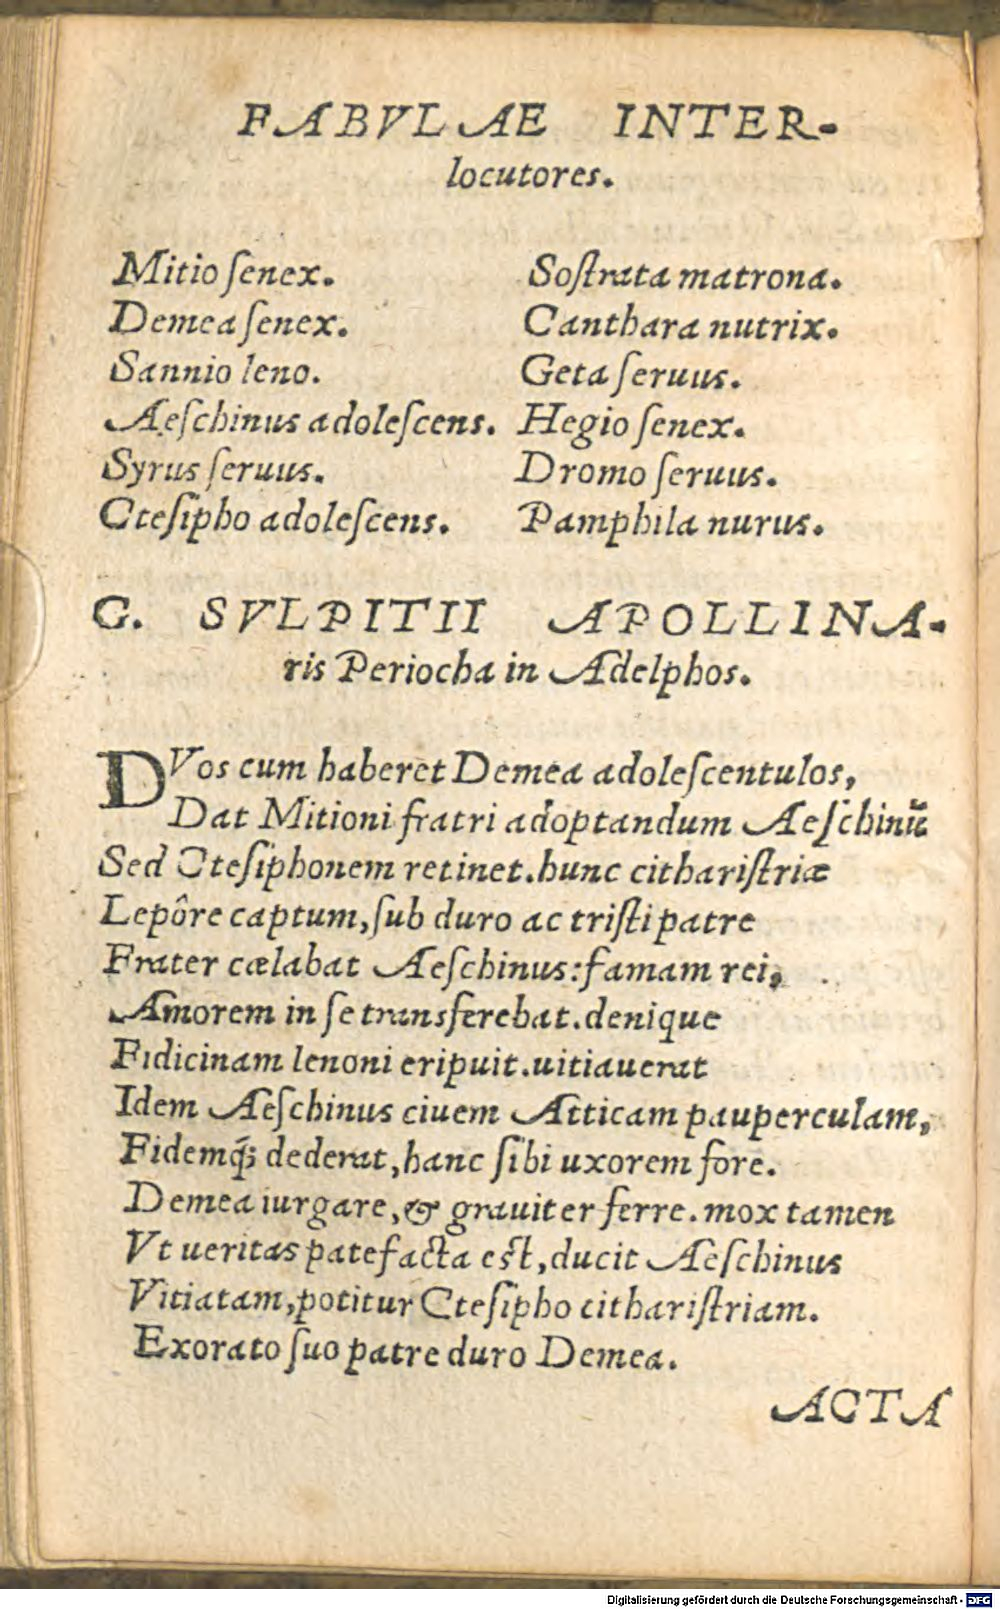 FABVLAE INTER-
locutores.
Mitio ſenex.
Demea ſenex.
Sannio leno.
Aeſchinus adoleſcens.
Syrus ſeruus.
Cteſipho adoleſcens.
Soſtrata matrona.
Canthara nutrix.
Geta ſeruus.
Hegio ſenex.
Dromo ſeruus.
Pamphila nurus.
G. SVLPITII APOLLINA-
ris Periocha in Adelphos.
DVos cum haberet Demea adoleſcentulos,
Dat Mitioni fratri adoptandum Aeſchinũ
Sed Cteſiphonem retinet.hunc cithariſtriæ
Lepôre captum,ſub duro ac triſti patre
Frater cælabat Aeſchinus:famam rei,
Amorem in ſe transferebat.denique
Fidicinam lenoni eripuit.uitiauerat
Idem Aeſchinus ciuem Atticam pauperculam,
Fidemq́; dederat,hanc ſibi uxorem fore.
Demea iurgare,& grauiter ferre.mox tamen
Vt ueritas patefacta eſt,ducit Aeſchinus
Vitiatam,potitur Cteſipho cithariſtriam.
Exorato ſuo patre duro Demea.
ACTA
Digitalisierung gefördert durch die Deutsche Forschungsgemeinschaft - DFG